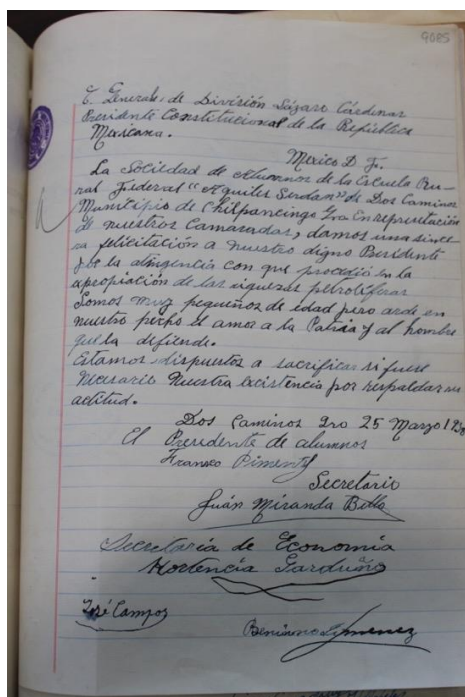 9085
C. General, de División Lázaro Cárdenas
Presidente Constitucional de la República
Mexicana.
Mexico D. F.
La Sociedad de Alumnos de la Escuela Ru-
ral Federal "Aquiles Serdan" de Dos Caminos
Municipio de Chilpancingo Gro. En representación
de nuestros Camaradas, damos una since-
ra felicitación a nuestro digno Presidente
por la atingencia con que procedió en la
expropiación de las riquezas petroliferas
Somos muy pequeños de edad pero arde en
nuestro pecho el amor a la Patria y al hombre
que la defiende.
Estamos dispuestos a sacrificar si fuese
necesario nuestra existencia por respaldar su
actitud.
Dos Caminos Gro 25 Marzo 1938
El Presidente de alumnos
Pimentel
Secretario
Juán Miranda Bello
Secretaria de Economía
Hortencia Garduño
José Campos
Jimenez